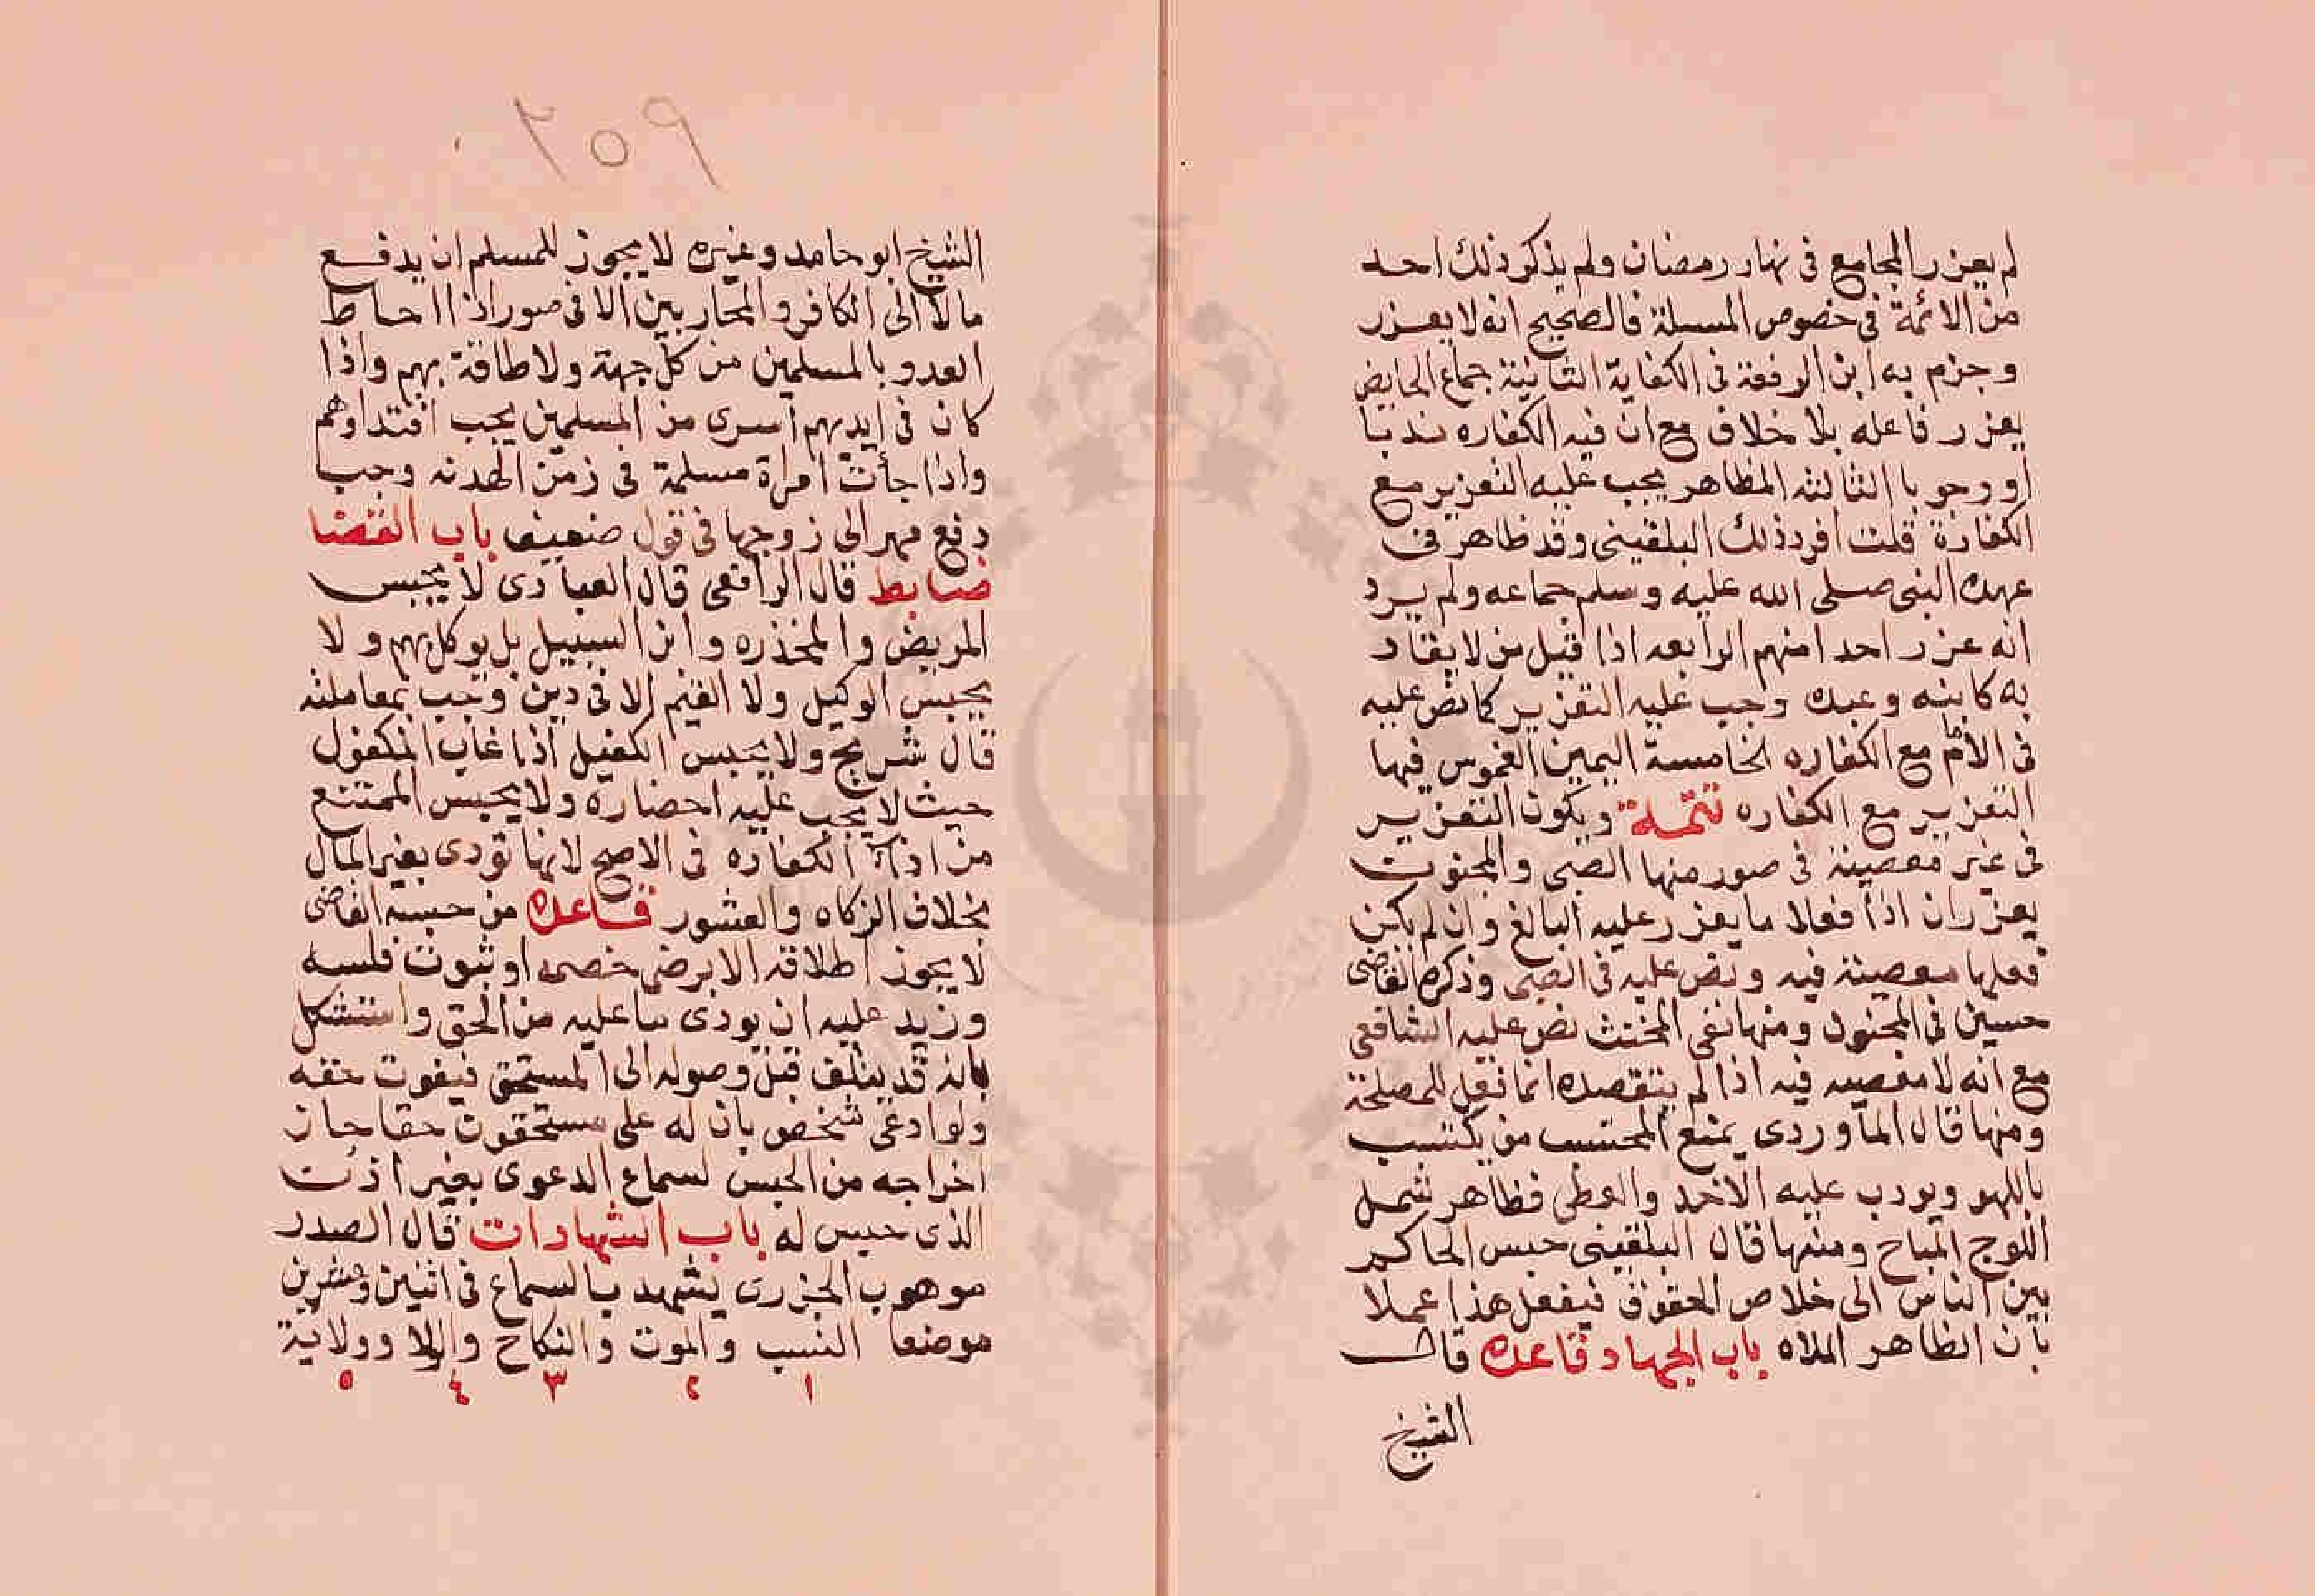 لم يعزر المجامع في نهار رمضان ولم يذكر ذلك احد
من الائمة في خصوص المسيلة فالصحيح انه لا يعزر
وجزم به ابن الرفعة في الكفاية الثانية جماع الحايض
يعزر فاعله بلا خلاف مع ان فيه الكفاره ندبا
او وجوبا الثالثه المظاهر يجب عليه التعزير مع
الكفارة قلت افرد ذلك البلقيني وقد ظاهر في
عهد النبي صلى الله عليه وسلم جماعه ولم يرد
انه عزر احدا منهم الرابعه اذا قتل من لا يقاد
به كابنه وعبده وجب عليه التعزير كما نص عليه
في الام مع الكفاره الخامسة اليمين الغموس فيها
التعزير مع الكفاره تتمة ويكون التعزير
في غير معصية في صور منها الصبى والمجنون
يعزران اذا فعلا ما يعزر عليه البالغ وان لم يكن
فعلها معصية فيه ونص عليه في الصبى وذكره القاضى
حسين في المجنون ومنها نفى المخنث نص عليه الشافعي
مع انه لا معصيه فيه اذا لم يتقصده انما فعل للمصلحة
ومنها قال الماوردى يمنع المحتسب من يكتسب
باللهو ويودب عليه الاخد والمعطى فظاهر شمل
اللوج المباح ومنها قال البلقيني حبس الحاكم
بين الناس الى خلاص الحقوق فيفعل هذا عملا
بان الظاهر الملاه باب الجهاد قاعدة قال
الشيخ
٢٥٩
الشيخ ابو حامد وغيره لا يجوز للمسلم ان يدفع
مالا الى الكافر والمحاربين الا في صور اذا احاط
العدو بالمسلمين من كل جهة ولا طاقة بهم واذا
كان في ايديهم اسرى من المسلمين يجب افتداوهم
واذا جأت امراة مسلمة في زمن الهدنه وجب
دفع مهر الى زوجها في قول ضعيف باب القضا
ضابط قال الرافعي قال العبادى لا يحبس
المريض والمخذره وابن السبيل بل يوكل بهم ولا
يحبس الوكيل ولا القيم الا في دين وجب بمعاملته
قال شريح ولا يحبس الكفيل اذا غاب المكفول
حيث لا يجب عليه احضاره ولا يحبس الممتنع
من اداء الكفاره في الاصح لانها تؤدى بغير المال
بخلاف الزكاه والعشور قاعدة من حبسه القاضى
لا يجوز اطلاقه الا برضى خصمه او ثبوت فلسه
وزيد عليه ان يودى ما عليه من الحق واستشكل
بانه قد يتلف قبل وصوله الى المستحق فيفوت حقه
ولو ادعى شخص بان له على مستحقون حقا جاز
اخراجه من الحبس لسماع الدعوى بغير اذن
الذى حبس له باب الشهادات قال الصدر
موهوب الجزرى يشهد بالسماع في اثنين وعشرين
موضعا النسب والموت والنكاح والولا وولاية
١ ٢ ٣ ٤ ٥